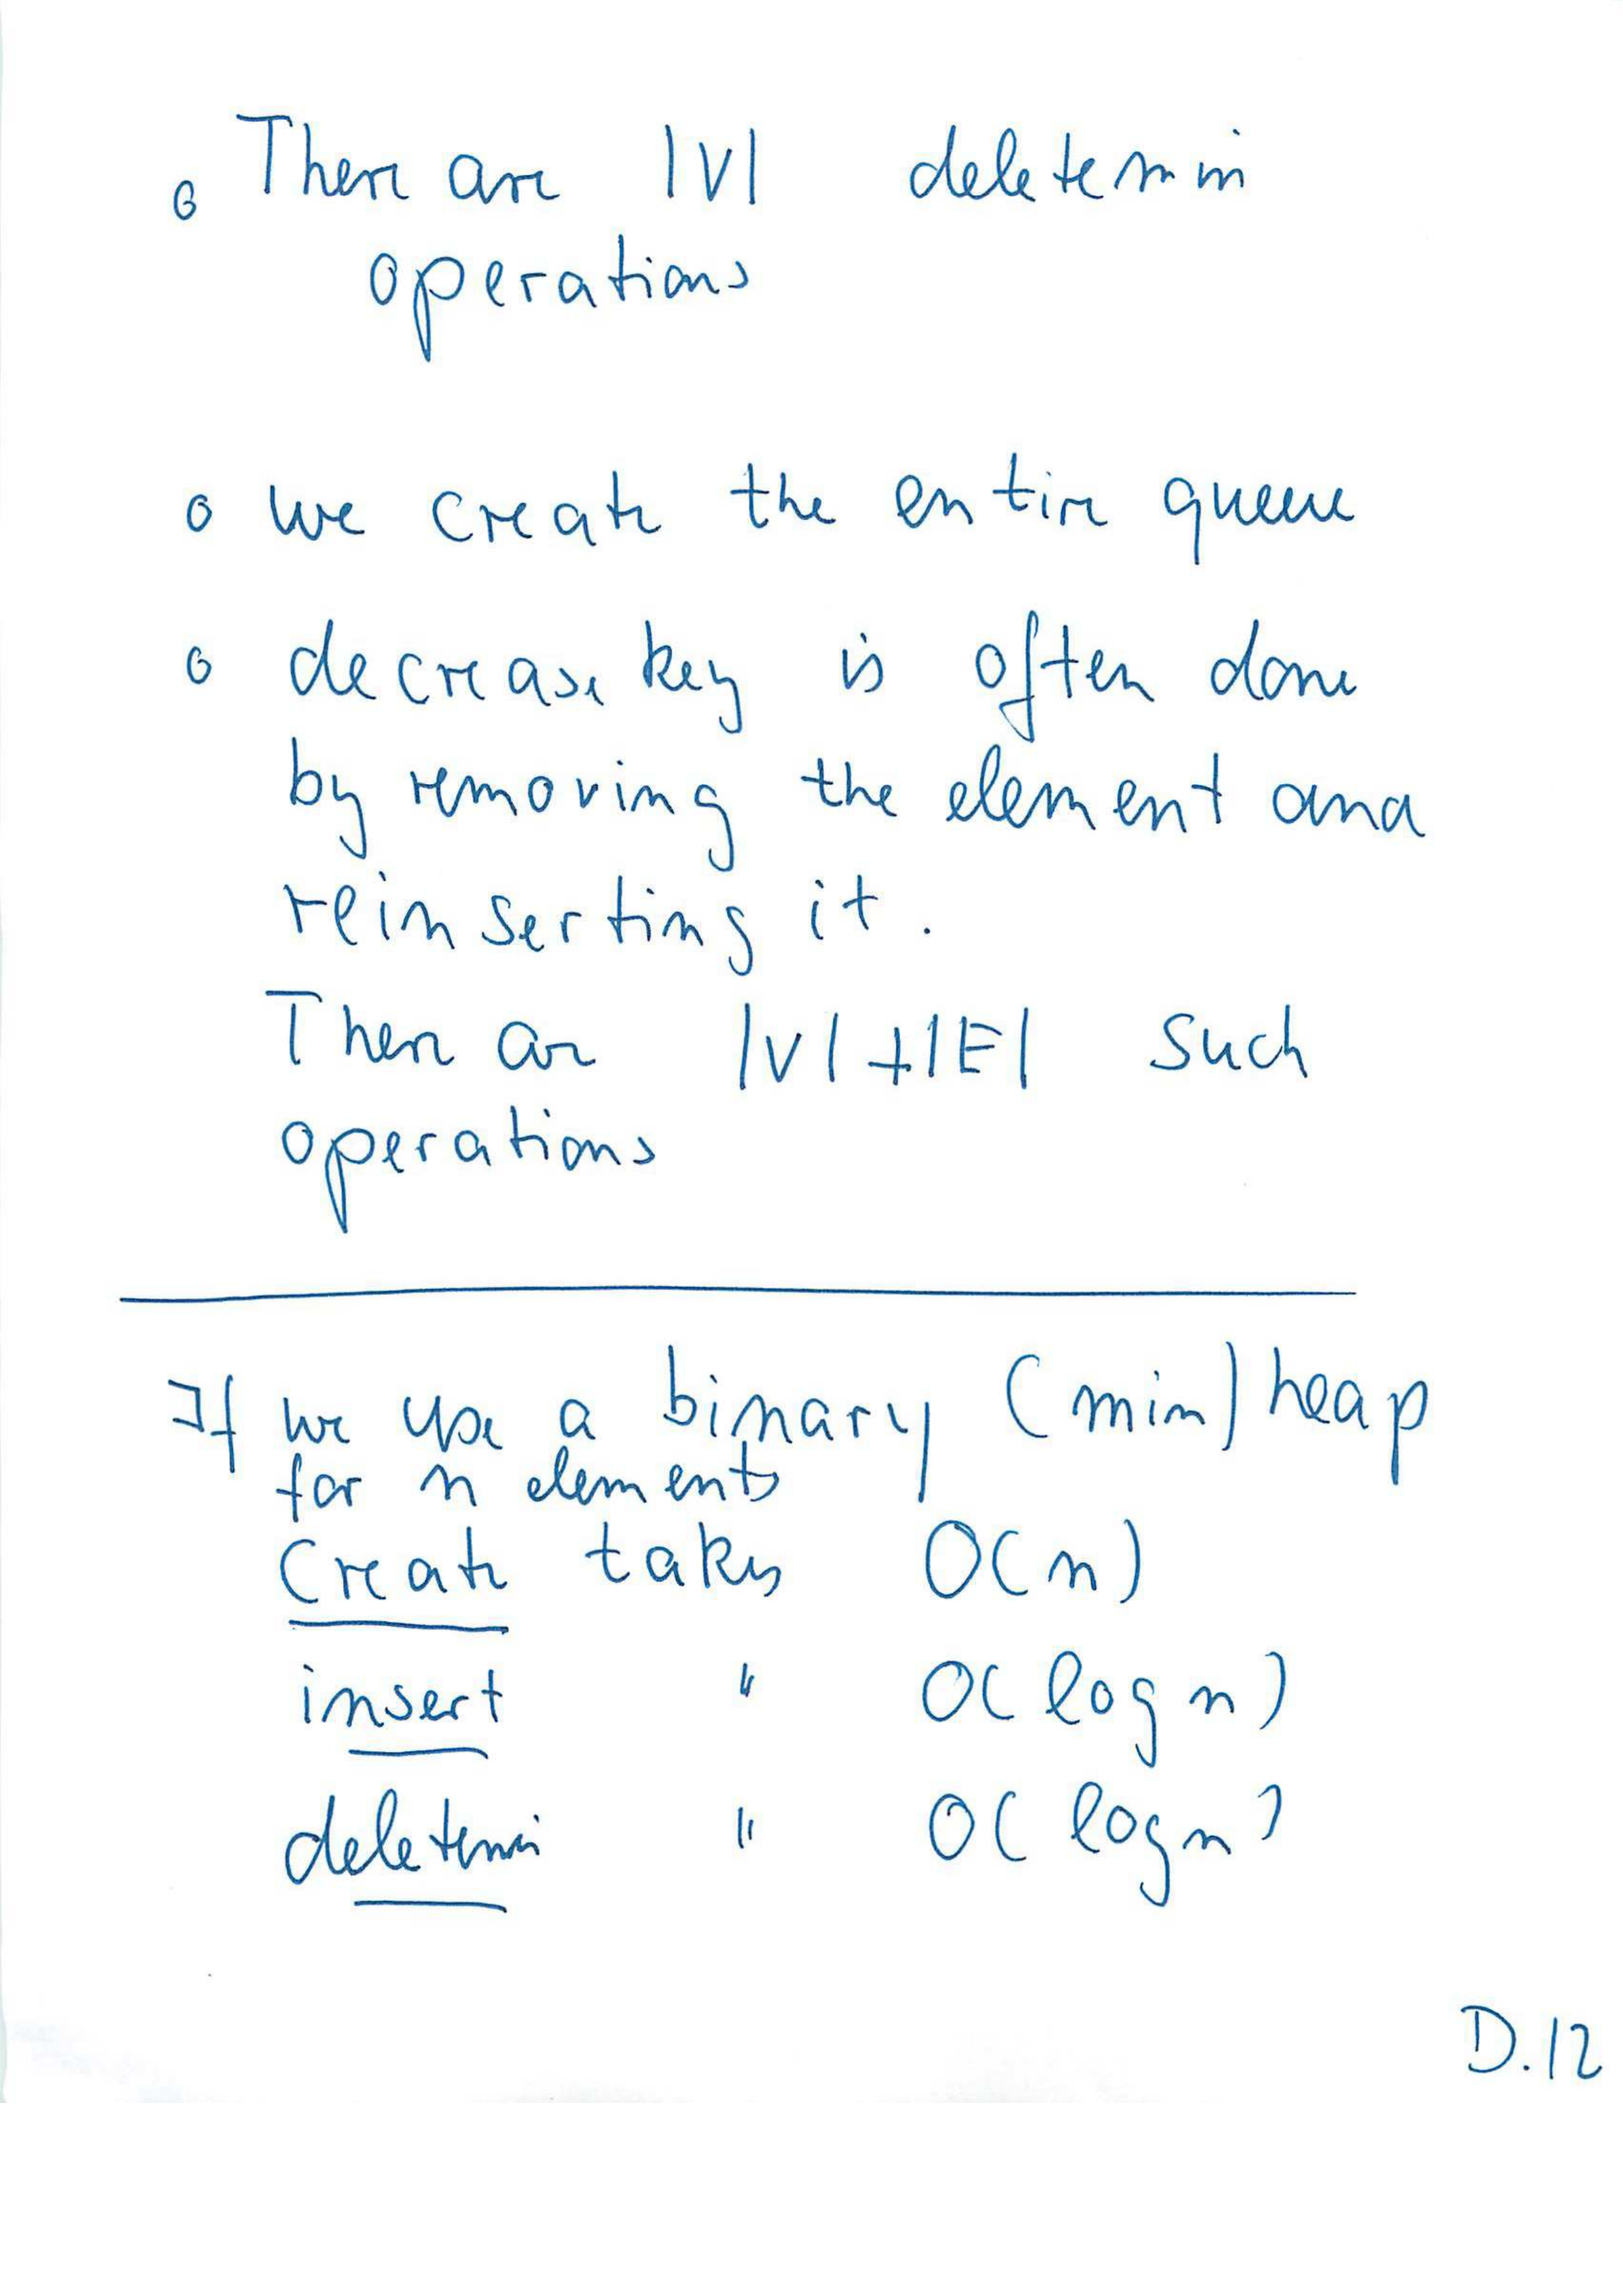 o There are |V| deletemin
operations
o we create the entire queue
o decreasekey is often done
by removing the element and
reinserting it.
There are |V|+|E| such
operations
If we use a binary (min) heap
for n elements
Create takes O(n)
insert " O(log n)
deletemin " O(log n)
D.12